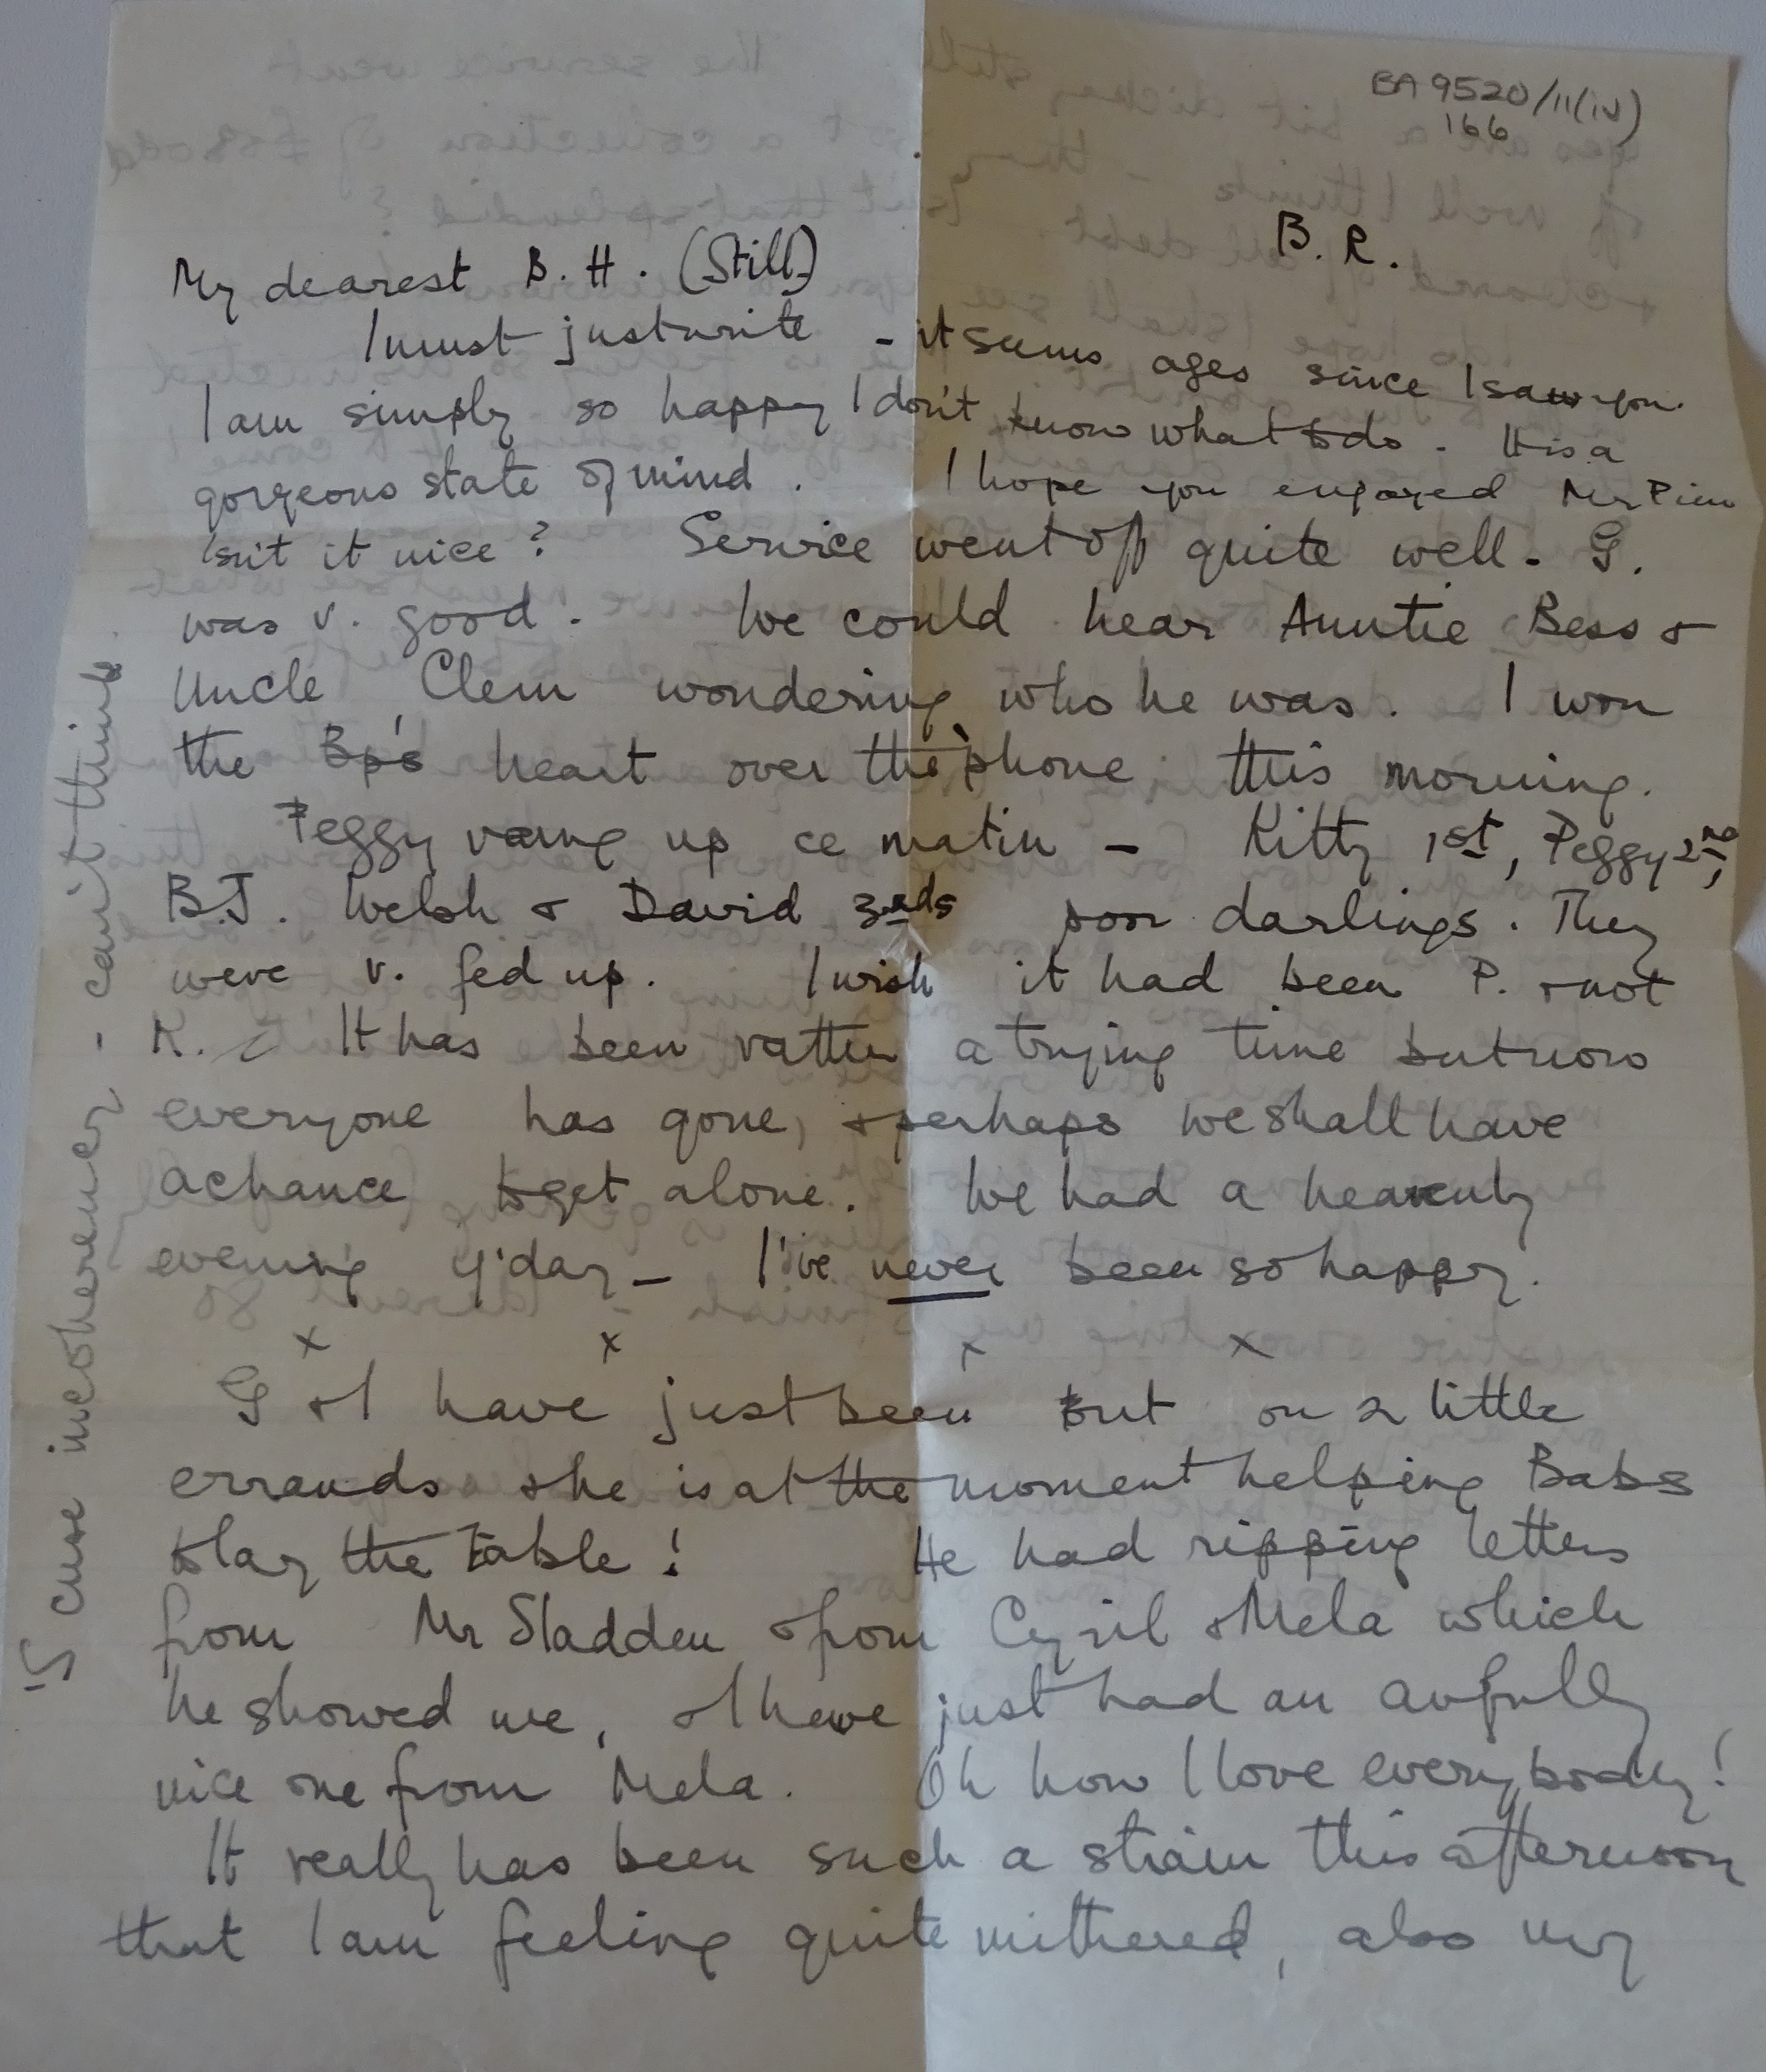 BA 9520/11(iv)
166
B. R.
My dearest B. H. (Still)
I must just write - it seems ages since I saw you.
I am simply so happy I don't know what to do. It is a
gorgeous state of mind. I hope you enjoyed Mr Pim
isn't it nice? Service went off quite well. G.
was v. good. We could hear Auntie Bess &
Uncle Clem wondering who he was. I won
the Bp's heart over the 'phone this morning.
Peggy rang up ce matin - Kitty 1st, Peggy 2nd,
B.J. Welsh & David 3rds poor darlings. They
were v. fed up. I wish it had been P. & not
K. It has been rather a trying time but now
everyone has gone, & perhaps we shall have
a chance to get alone. We had a heavenly
evening y'day - I've never been so happy.
x x x x
G & I have just been out on 2 little
errands & he is at the moment helping Babs
to lay the table! He had ripping letters
from Mr Sladden & from Cyril & Mela which
he showed me, & I have just had an awfully
nice one from Mela. Oh how I love everybody!
It really has been such a strain this afternoon
that I am feeling quite mithered, also my
'Scuse incoherency - can't think.